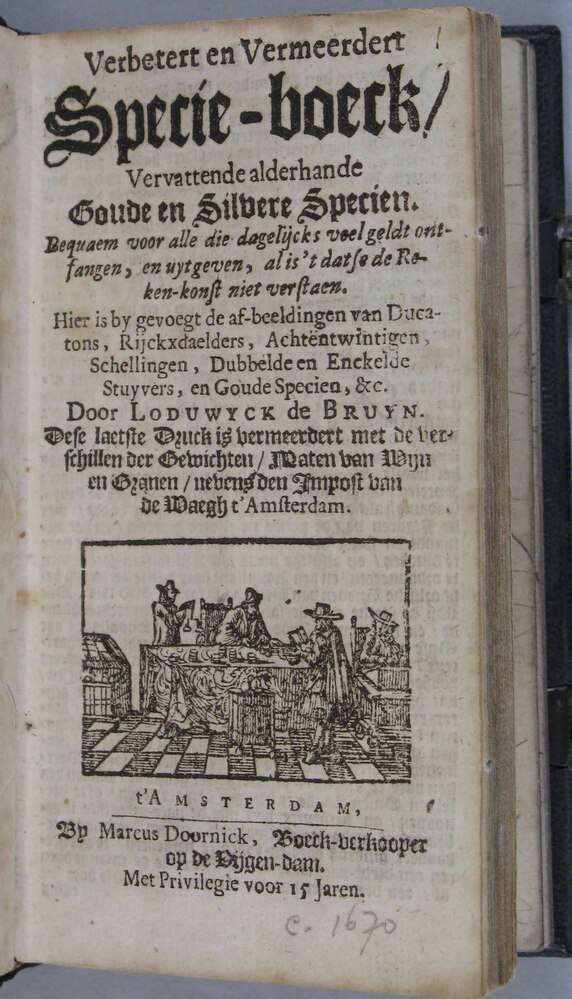 Verbetert en Vermeerdert
Specie-boeck/
Vervattende alderhande
Goude en Silvere Specien.
Bequaem voor alle die dagelijcks veel geldt ont-
fangen, en uytgeven, al is 't datse de Re-
ken-konst niet verstaen.
Hier is by gevoegt de af-beeldingen van Duca-
tons, Rijckxdaelders, Achtentwintigen,
Schellingen, Dubbelde en Enckelde
Stuyvers, en Goude Specien, &c.
Door LODUWYCK de BRUYN.
Dese laetste Druck is vermeerdert met de ver-
schillen der Gewichten/ Maten van Wijn
en Granen/ nevens den Impost van
de Waegh t'Amsterdam.
t'AMSTERDAM,
By Marcus Doornick, Boeck-verkooper
op de Vijgen-dam.
Met Privilegie voor 15 Jaren.
c. 1670